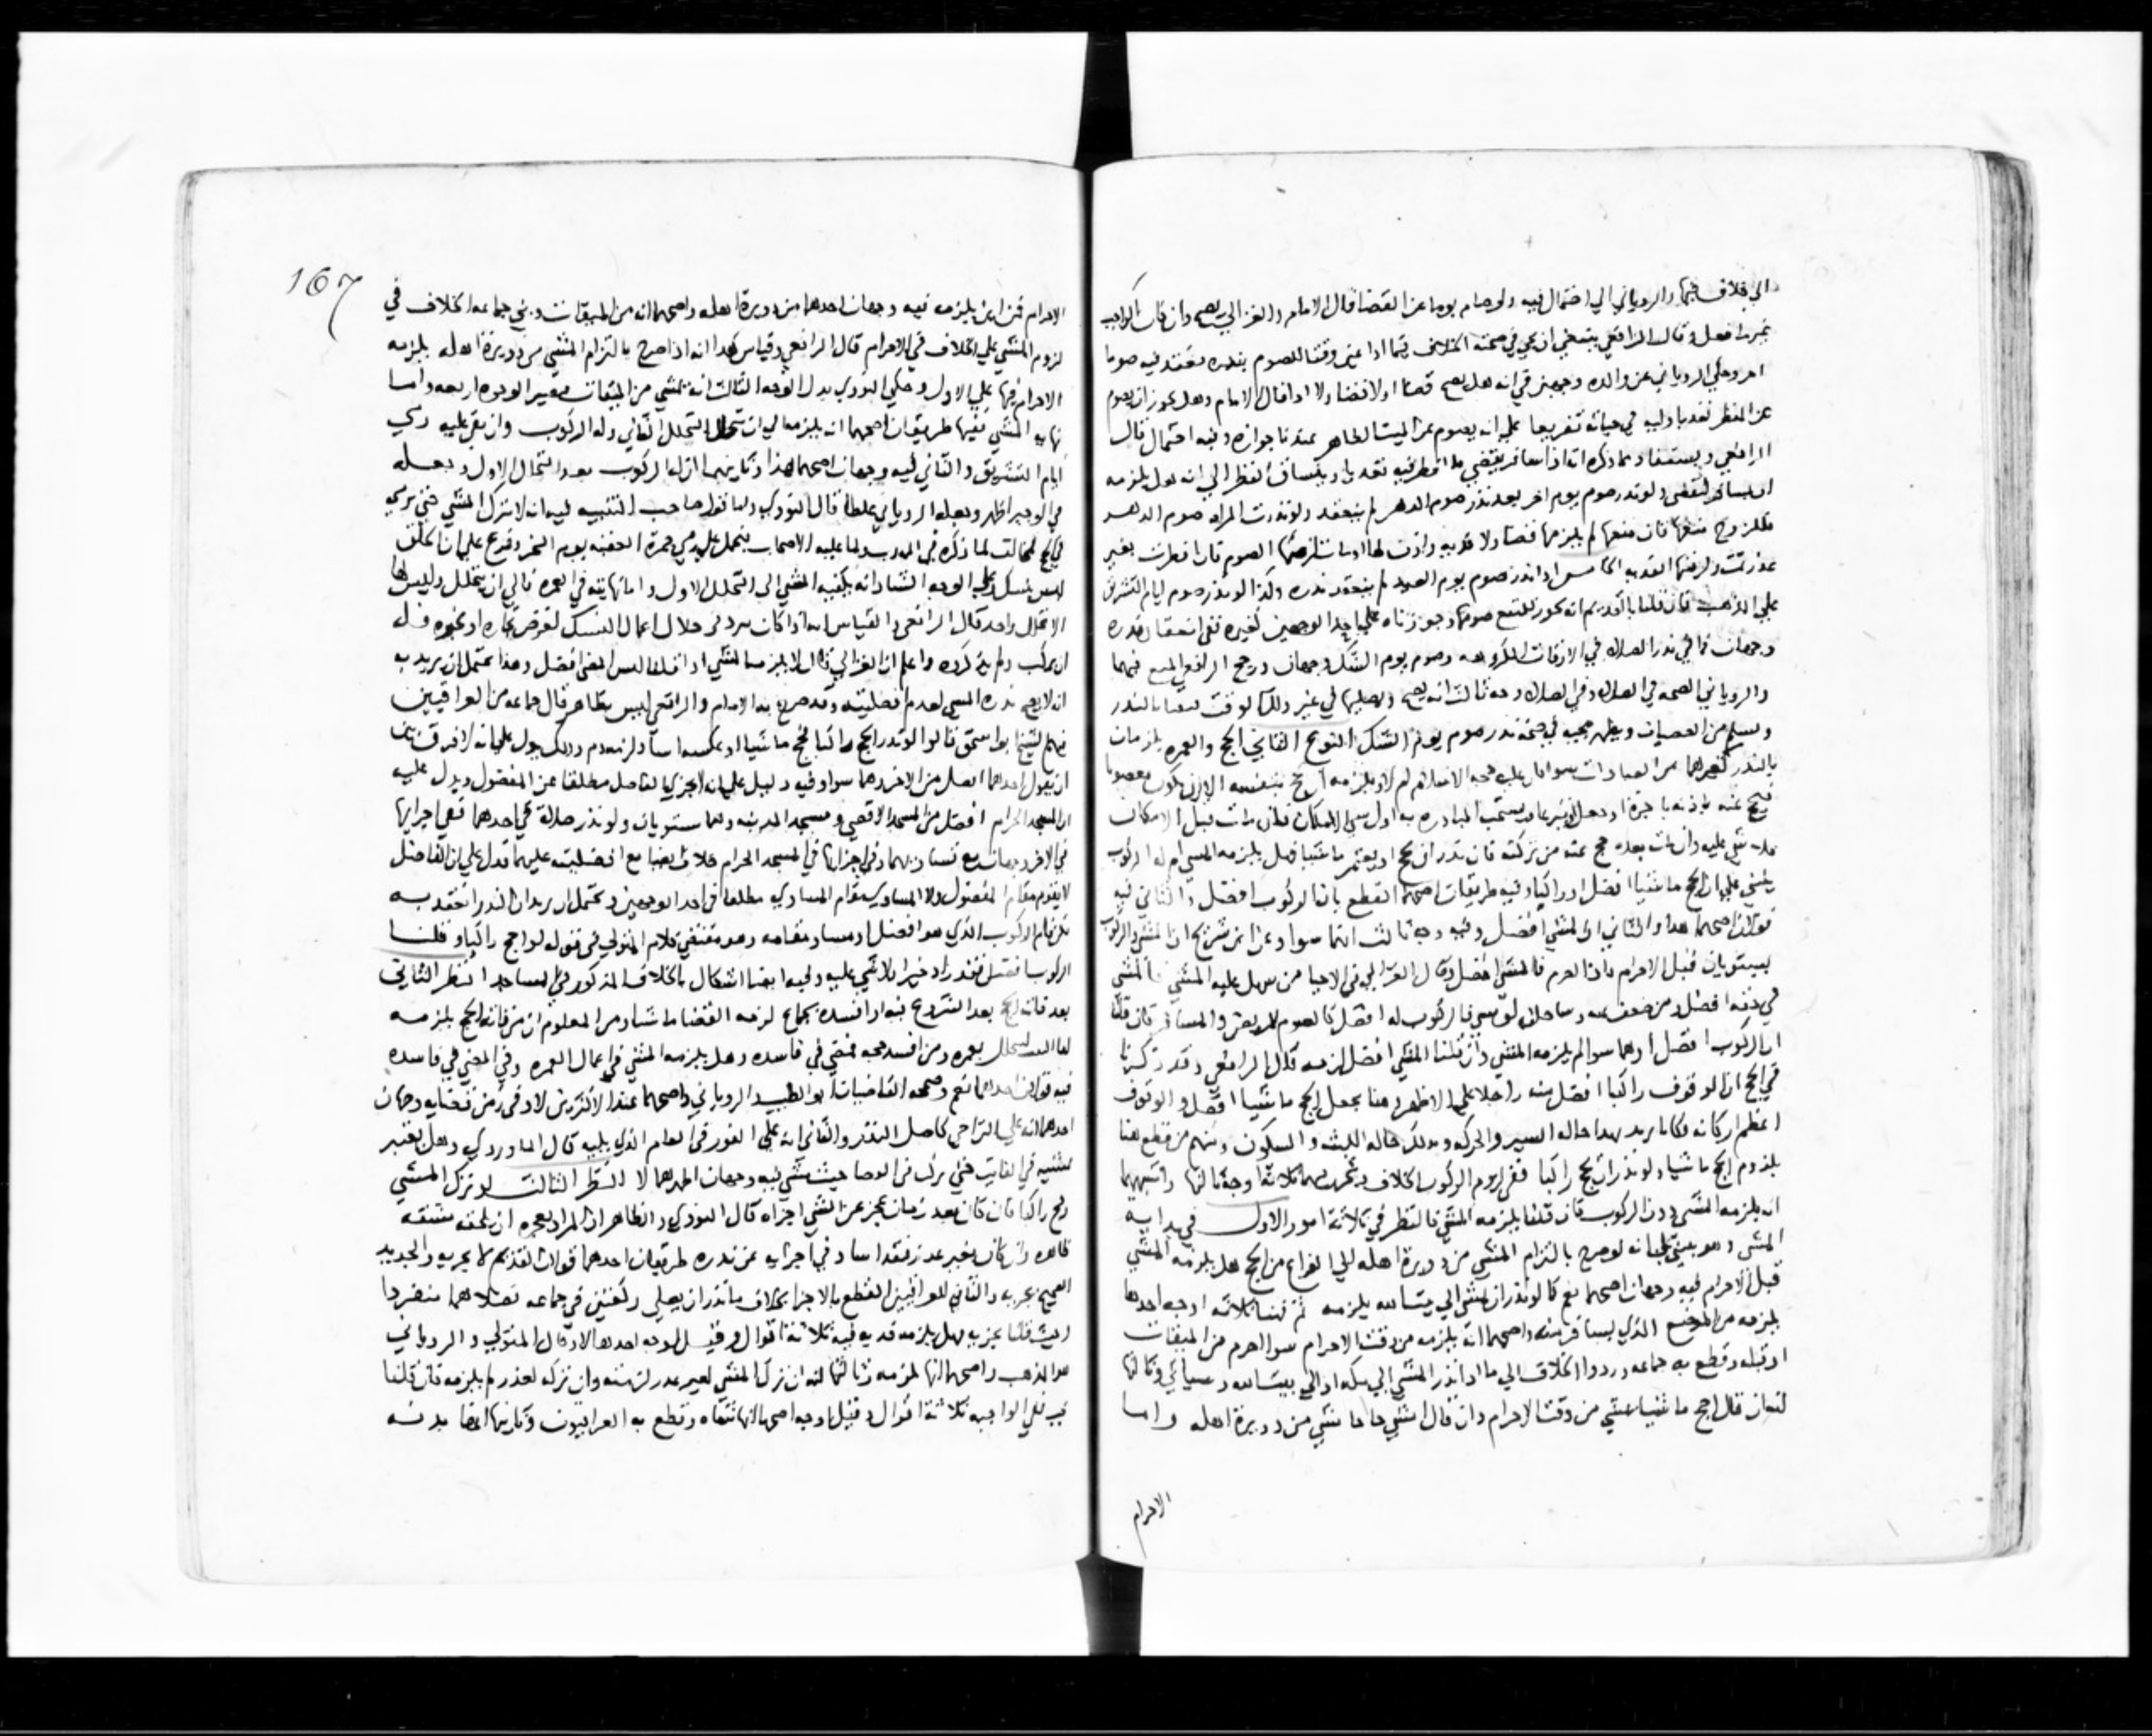 الى خلاف فيها والروياني الي احتمال فيه ولو صام يوما عن القضا قال الامام والغزالي يصح وان كان الواجب
غيره افعل وقال الرافعي ينبغي ان يجي في صحته الخلاف فيما اذا عين وقتا للصوم بنذره فعقد فيه صوما
اخر وحكي الروياني عن والده وجهين في انه هل يصح قضا اولا قضا ولا ادا قال الامام وهل يجوز ان يصوم
عن الفطر تعديا وليه في حياته تفريعا علي انه يصوم عن الميت الظاهر عندنا جوازه وفيه احتمال قال
الرافعي ويستفاد مما ذكره انه اذا سافر يقضي ما افطر فيه تعديا وينساق النظر الي انه هل يلزمه
ان يسافر ليقضي ولو نذر صوم يوم اخر بعد نذر صوم الدهر لم ينعقد ولو نذرت المراه صوم الدهر
فللزوج منعها فان منعها لم يلزمها قضا ولا فديه وان اذن لها او مات لزمها الصوم فان افطرت بغير
عذر اثمت ولزمتها الفديه الخامس اذا نذر صوم يوم العيد لم ينعقد نذره وكذا لو نذر صوم ايام التشريق
علي المذهب فان قلنا بالقديم انه يجوز للمتمتع صومها وجوزناه علي احد الوجهين لغيره ففي انعقاد نذره
وجهان كما في نذر الصلاه في الاوقات المكروهه وصوم يوم الشك وجهان ورجح الرافعي المنع فيهما
والروياني الصحه في الصلاه وفي الصلاه وجه ثالث انه يصح ويصليها في غير ذلك الوقت
النوع الثاني الحج والعمره يلزمان
بالنذر كغيرهما من العبادات سوا كان عليه حجة الاسلام ام لا ويلزمه ان يحج بنفسه الا ان يكون معضوبا
فيحج عنه باذنه باجرة او جعل او تبرعا ويستحب المبادره به اول سني الامكان فان مات قبل الامكان
فلا شي عليه وان مات بعده حج عنه من تركته فان نذر ان يحج او يعتمر ماشيا فهل يلزمه المشي ام له الركوب
يبني علي ان الحج ماشيا افضل او راكبا وفيه طريقان اصحهما القطع بان الركوب افضل والثاني فيه
قولان اصحهما هذا والثاني ان المشي افضل وفيه وجه ثالث انهما سوا وعن ابن سريج ان المشي والركوب
يستويان قبل الاحرام فاذا احرم فالمشي افضل وقال الغزالي في الاحيا من سهل عليه المشي فالمشي
في حقه افضل ومن ضعف عنه وساء خلقه لو مشي فالركوب له افضل كالصوم للمريض والمسافر فان قلنا
ان الركوب افضل او هما سوا لم يلزمه المشي وان قلنا المشي افضل لزمه قال الرافعي وقد ذكرنا
في الحج ان الوقوف راكبا افضل منه راجلا علي الاظهر وهنا يجعل الحج ماشيا افضل والوقوف
اعظم اركانه فكانا نريد بهذا حالة السير والحركه وبذلك حالة اللبث والسكون ومنهم من قطع هنا
بلزوم الحج ماشيا ولو نذر ان يحج راكبا ففي لزوم الركوب الخلاف ثلاثة اوجه ثالثها واشبهها
انه يلزمه المشي دون الركوب فان قلنا يلزمه المشي فالنظر في ثلاثة امور الاول في بداية
المشي وهو مبني علي انه لو صرح بالتزام المشي من دويرة اهله الي الفراغ من الحج هل يلزمه المشي
قبل الاحرام فيه وجهان اصحهما نعم كما لو نذر ان يمشي الي بيت الله يلزمه ثم هنا ثلاثة اوجه احدها
يلزمه من الموضع الذي يسافر منه واصحهما انه يلزمه من وقت الاحرام سوا احرم من الميقات
او قبله وقطع به جماعه وردوا الخلاف الي ما اذا نذر المشي الي مكه او الي بيت الله وسياتي وثالثها
انه ان قال احج ماشيا مشي من وقت الاحرام وان قال امشي حاجا مشي من دويرة اهله واما
الاحرام
167
الاحرام فمن اين يلزمه فيه وجهان احدهما من دويرة اهله واصحهما انه من الميقات وبني جماعه الخلاف في
لزوم المشي علي الخلاف في الاحرام قال الرافعي وقياس هذا انه اذا صرح بالتزام المشي من دويرة اهله يلزمه
الاحرام فيها علي الاول وحكي النووي بدل الوجه الثالث انه يمشي من الميقات فتصير الوجوه اربعه واما
نهايه المشي ففيها طريقان اصحهما انه يلزمه الي ان يتحلل التحلل الثاني وله الركوب وان بقي عليه رمي
ايام التشريق والثاني فيه وجهان اصحهما هذا وثانيهما ان له الركوب بعد التحلل الاول وجعله
في الوجيز اظهر وجعله الروياني غلطا قال النووي واما قول صاحب التنبيه انه لا يترك المشي حتي يرمي
في الحج فمخالف لما ذكره في المهذب ولما عليه الاصحاب فيحمل علي رمي جمرة العقبه يوم النحر وفرع علي ان الحلق
ليس بنسك وعلي الوجه الشاذ انه يكفيه المشي الي التحلل الاول واما نهايته في العمره فالي ان يتحلل وليس لها
الا تحلل واحد قال الرافعي والقياس انه اذا كان يتردد في خلال اعمال النسك لغرض تجارة او غيره فله
ان يركب ولم يذكروه واعلم ان الغزالي قال لا يلزمه المشي اذا قلنا ليس المشي افضل وهذا يحتمل ان يريد به
انه لا يصح نذره المشي لعدم افضليته وقد صرح به الامام والرافعي وليس بظاهر فقال جماعه من العراقيين
منهم الشيخ ابو اسحق قالوا لو نذر الحج راكبا فحج ماشيا او عكسه اسا ولزمه دم وذلك يدل علي انه لا فرق بين
ان يكون احدهما افضل من الاخر وهما سوا وفيه دليل علي انه لا يجزي الفاضل مطلقا عن المفضول ويدل عليه
ان المسجد الحرام افضل من المسجد الاقصي ومسجد المدينه وهما مستويان ولو نذر صلاة في احدهما ففي اجزايها
في الاخر وجهان مع تساويهما وفي اجزايها في المسجد الحرام خلاف ايضا مع افضليته عليهما فدل علي ان الفاضل
لا يقوم مقام المفضول ولا المساوي مقام المساوي مطلقا في احد الوجهين ويحتمل ان يريد ان النذر انعقد به
لكن قام الركوب الذي هو افضل او مساو مقامه وهو مقتضي كلام المتولي في قوله لو احج راكبا وقلنا
الركوب افضل فقد زاد خيرا ولا شي عليه وفيه ايضا اشكال بالخلاف المذكور في المساجد النظر الثاني
بعد فاته الحج بعد الشروع فيه او افسده بجماع لزمه القضا ماشيا ومن المعلوم ان من فاته الحج يلزمه
التحلل بعمره ومن افسد حجه فمضي في فاسده وهل يلزمه المشي في اعمال العمره وفي المضي في فاسده
فيه قولان احدهما نعم وصححه القاضيان ابو الطيب والروياني واصحهما عند الاكثرين لا وفي زمن قضايه وجهان
احدهما انه علي التراخي كاصل النذر والثاني انه علي الفور في العام الذي يليه قال الماوردي وهل يعتبر
مشيه في الفايت حتي يركب في القضا حيث مشي فيه وجهان اظهرهما لا النظر الثالث لو ترك المشي
وحج راكبا فان كان بعد زمان عجز عن المشي اجزاه قال النووي والظاهر ان المراد بعجزه ان يلحقه مشقه
ظاهره وان كان بغير عذر فقد اسا وفي اجزايه عن نذره طريقان احدهما قولان القديم لا يجزيه والجديد
الصحيح يجزيه والثاني للعراقيين القطع بالاجزا بخلاف ما نذر ان يصلي ركعتين في جماعه فصلاهما منفردا
وحيث قلنا يجزيه فهل يلزمه فديه فيه ثلاثة اقوال وقيل اوجه احدها لا وقال المتولي والروياني
هو المذهب واصحهما انها تلزمه وثالثها انه ان ترك المشي لغير عذر لزمته وان تركه لعذر لم يلزمه فان قلنا
يجب ففي الواجبه ثلاثة اقوال وقيل اوجه اصحها انها شاه وقطع به العراقيون وثانيها انها بدنه